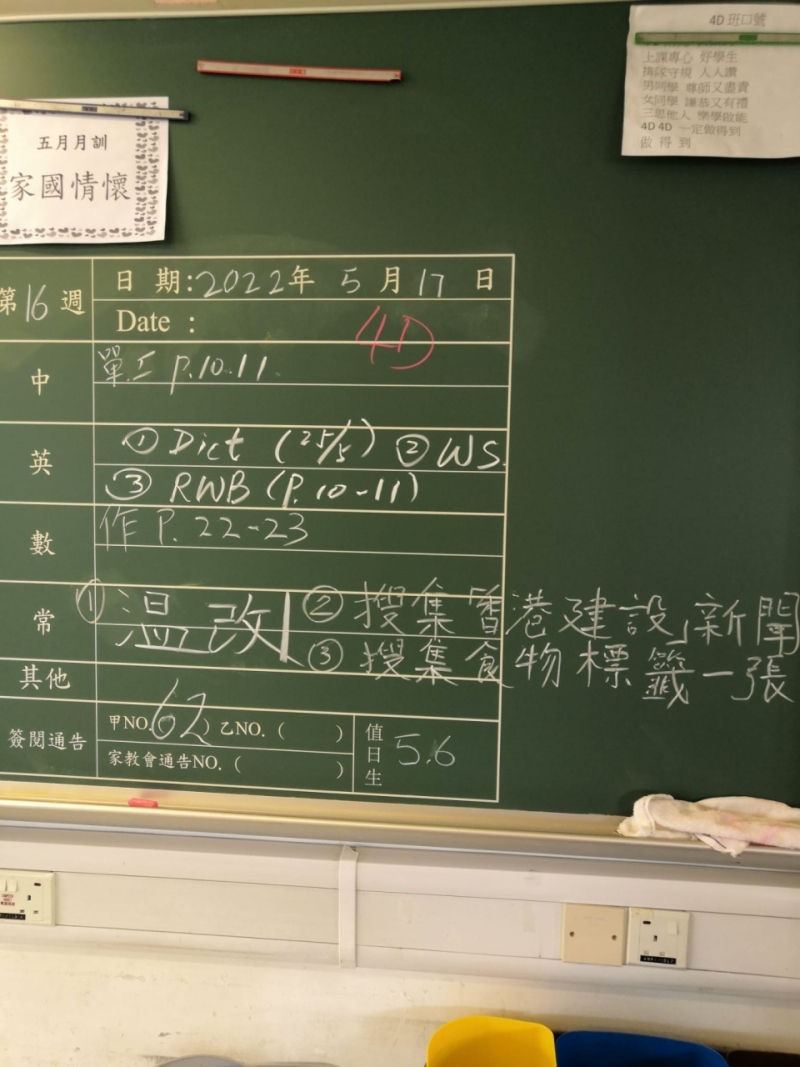 4D 班口號
上課專心 好學生
排隊守規 人人讚
男同學 尊師又盡責
女同學 謙恭又有禮
三思他人 樂學啟能
4D 4D 一定做得到
做 得 到
五月月訓
家國情懷
第16週
日 期:2022年 5 月 17 日
Date :
4D
中
單工 P.10-11.
英
① Dict (25/5) ② WS.
③ RWB (P.10-11)
數
作 P.22-23
常
① 温改 ② 搜集香港建設新聞
③ 搜集食物標籤一張
其他
簽閱通告
甲NO.(62) 乙NO. ( )
家教會通告NO. ( )
值日生
5.6